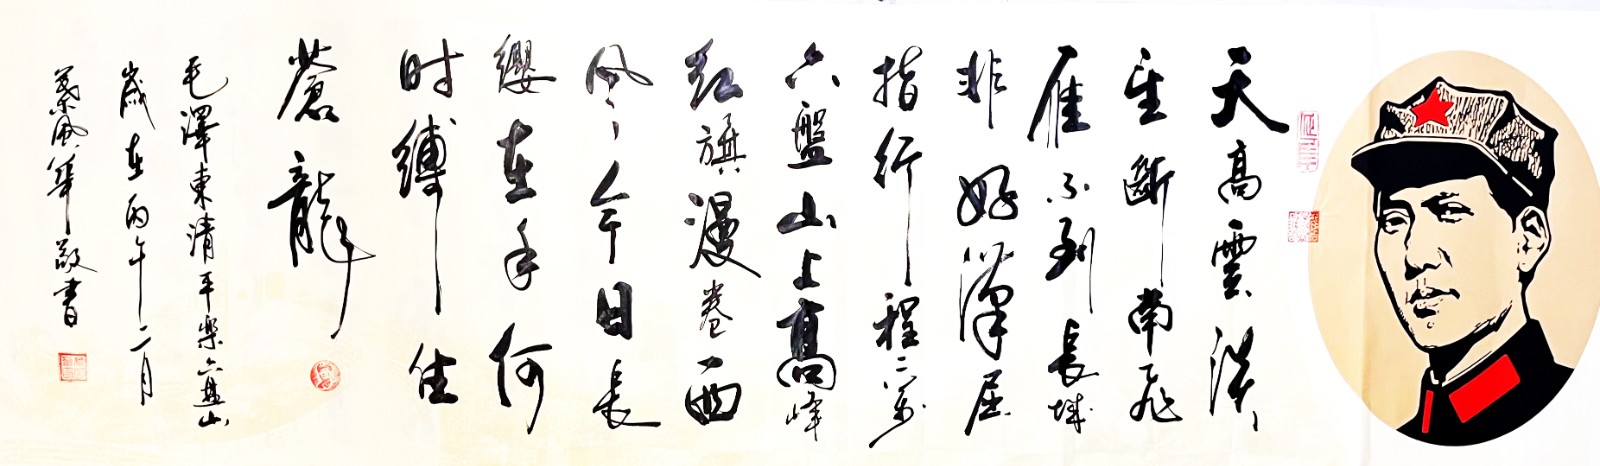 天高雲淡
望斷南飛
雁不到長城
非好漢屈
指行程二萬
六盤山上高峰
红旗漫卷西
风〻今日長
纓在手何
时縛住
蒼龍
毛澤東清平樂六盤山
歲在丙午二月
風华敬書